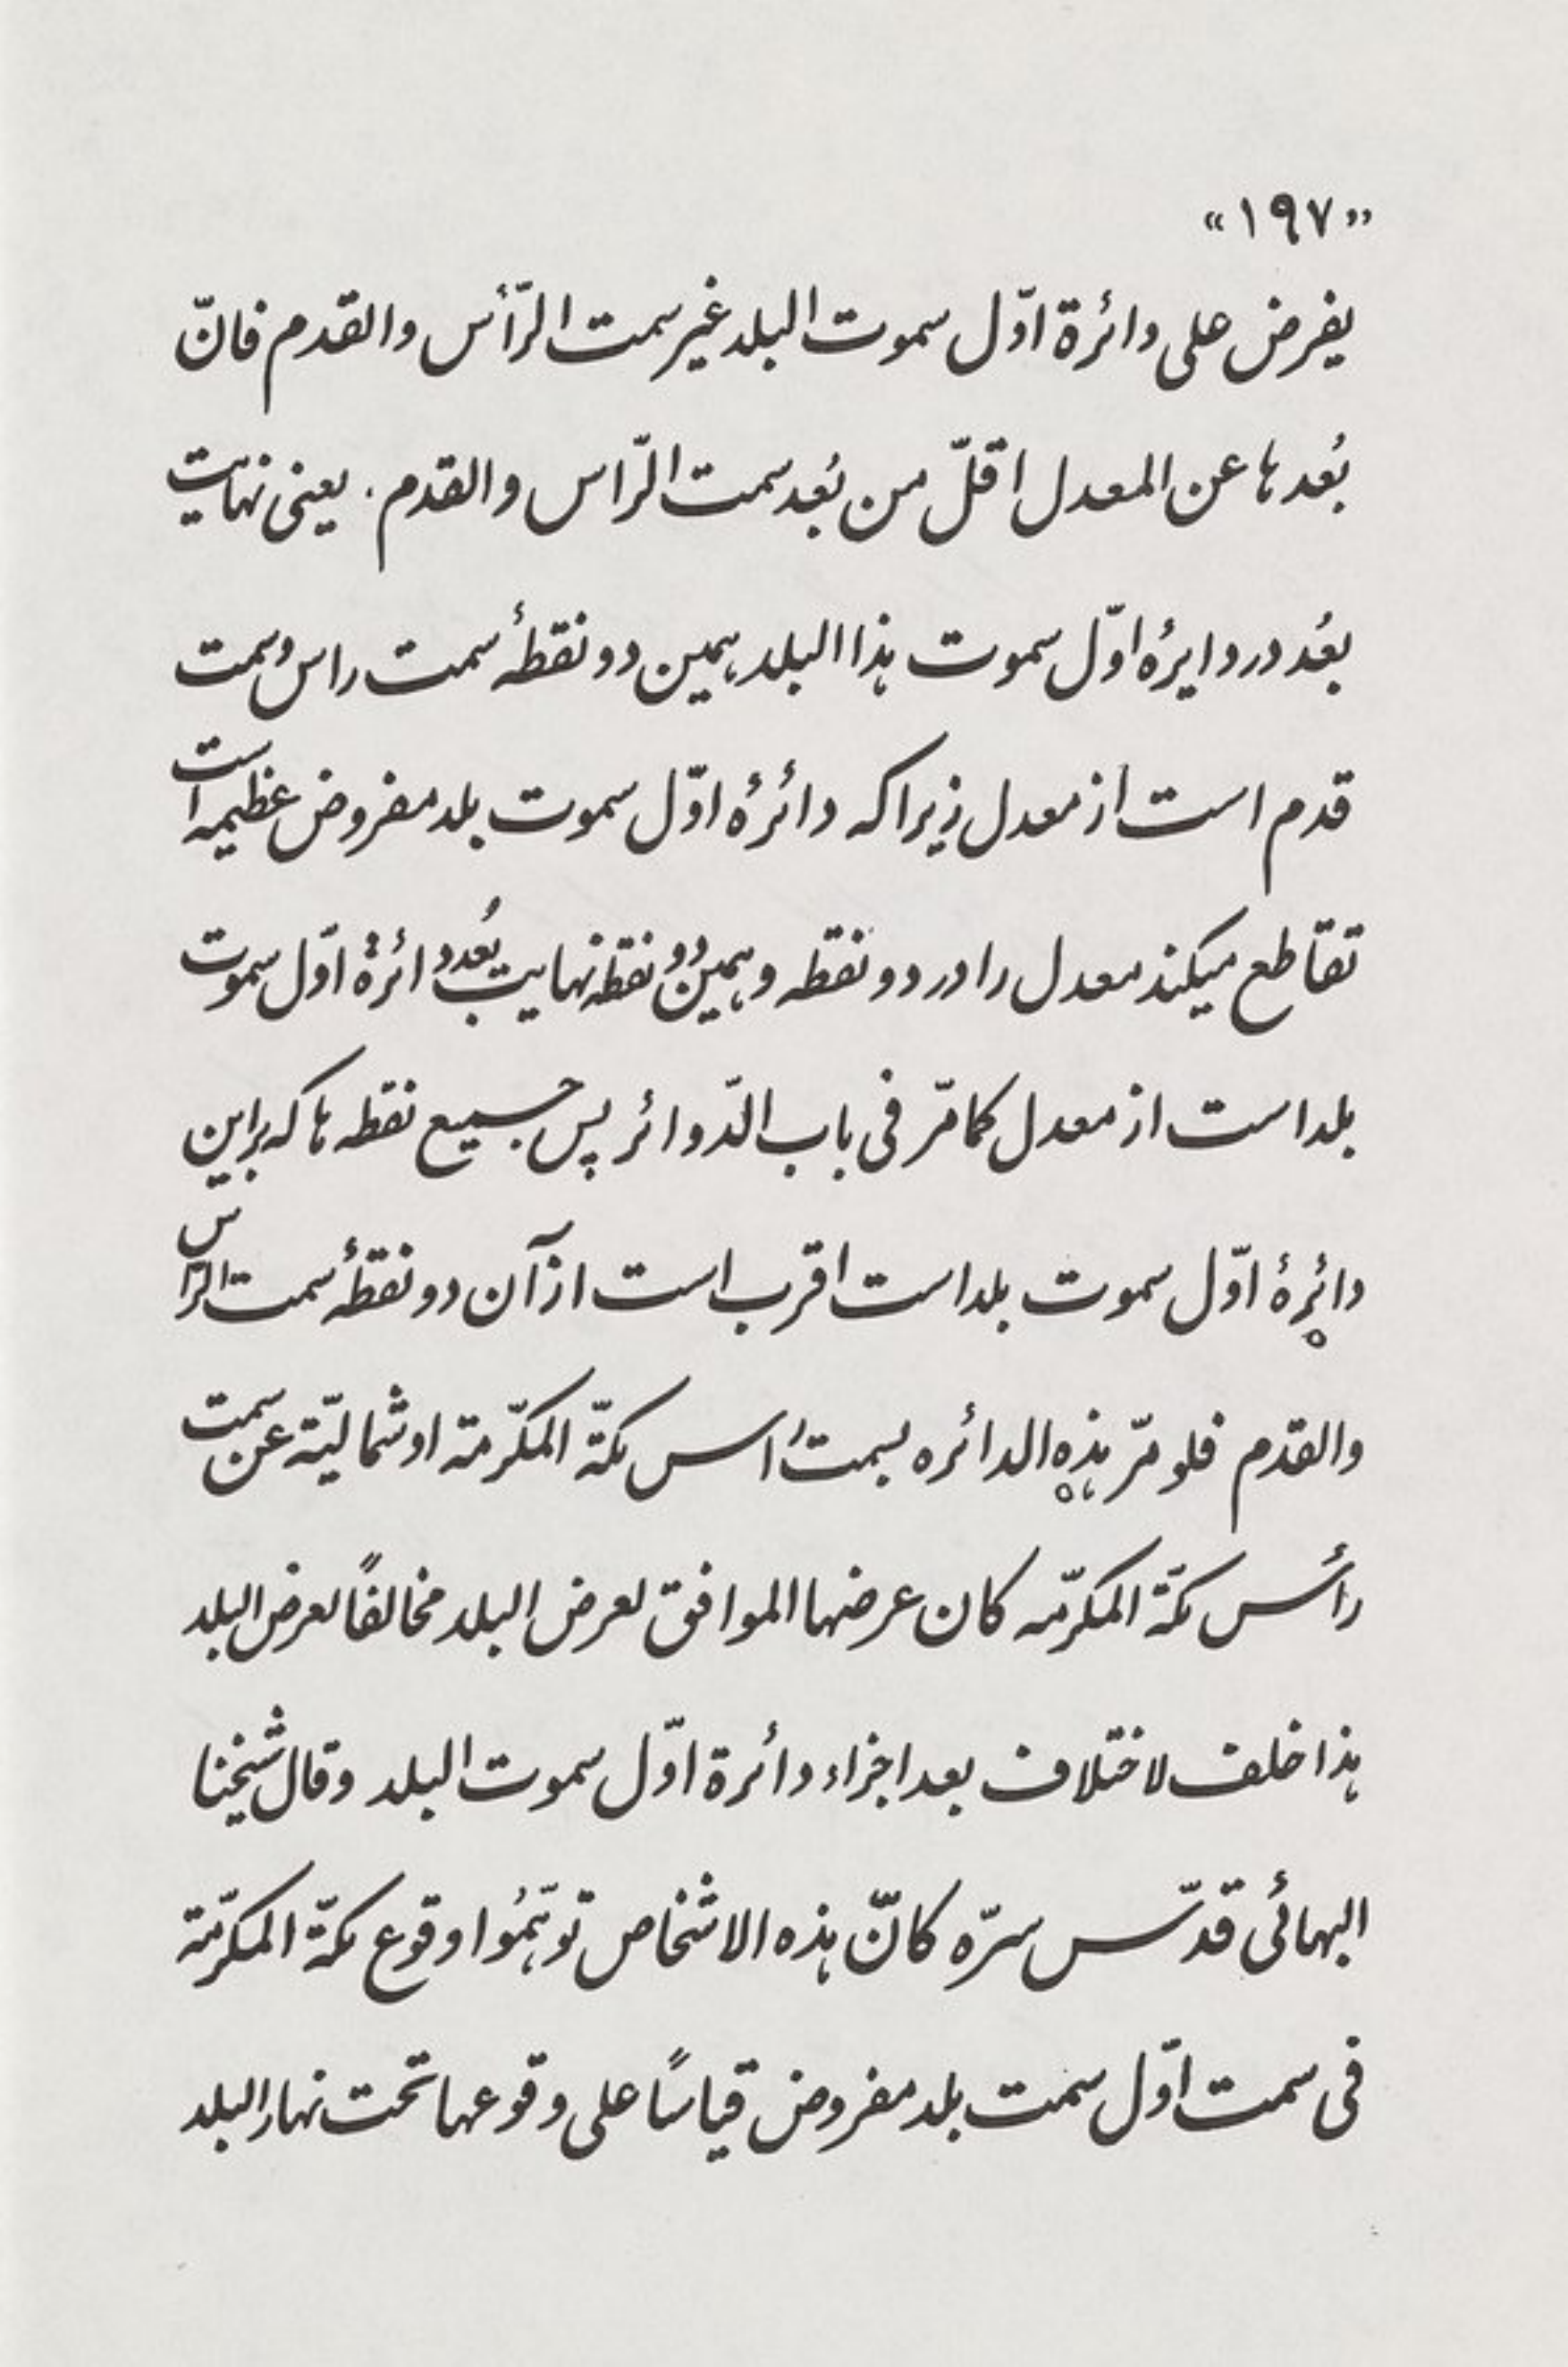 «۱۹۷»
یفرض علی دائرة اوّل سموت البلد غیر سمت الرّأس والقدم فانّ
بُعدها عن المعدل اقلّ من بُعد سمت الرّاس والقدم. یعنی نهایت
بعُد در دایرهٔ اوّل سموت هذا البلد همین دو نقطهٔ سمت راس و سمت
قدم است از معدل زیرا که دائرهٔ اوّل سموت بلد مفروض عظیمه است
تقاطع میکند معدل را در دو نقطه و همین دو نقطه نهایت بُعد دائرهٔ اوّل سموت
بلد است از معدل کما مرّ فی باب الدّوائر پس جمیع نقطه ها که بر این
دائرهٔ اوّل سموت بلد است اقرب است از آن دو نقطهٔ سمت الرّاس
والقدم فلو مرّ هذه الدائره بسمت راس مکّة المکرّمة او شمالیّة عن سمت
رأس مکّة المکرّمه کان عرضها الموافق لعرض البلد مخالفًا لعرض البلد
هذا خلف لاختلاف بعد اجزاء دائرة اوّل سموت البلد وقال شیخنا
البهائی قدّس سرّه کانّ هذه الاشخاص توهّمُوا وقوع مکّة المکرّمة
فی سمت اوّل سمت بلد مفروض قیاسًا علی وقوعها تحت نهار البلد